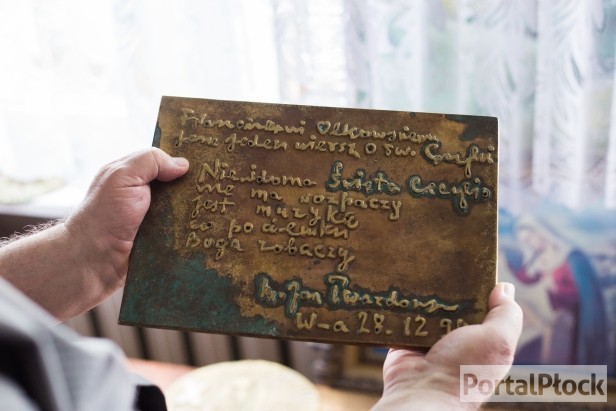 jeszcze jeden wiersz o św. Cecylii
Niewidoma Święta Cecylio
nie ma rozpaczy
jest muzyka
co po ciemku
Boga zobaczy
ks Jan Twardowski
W-a 28.12
PortalPłock